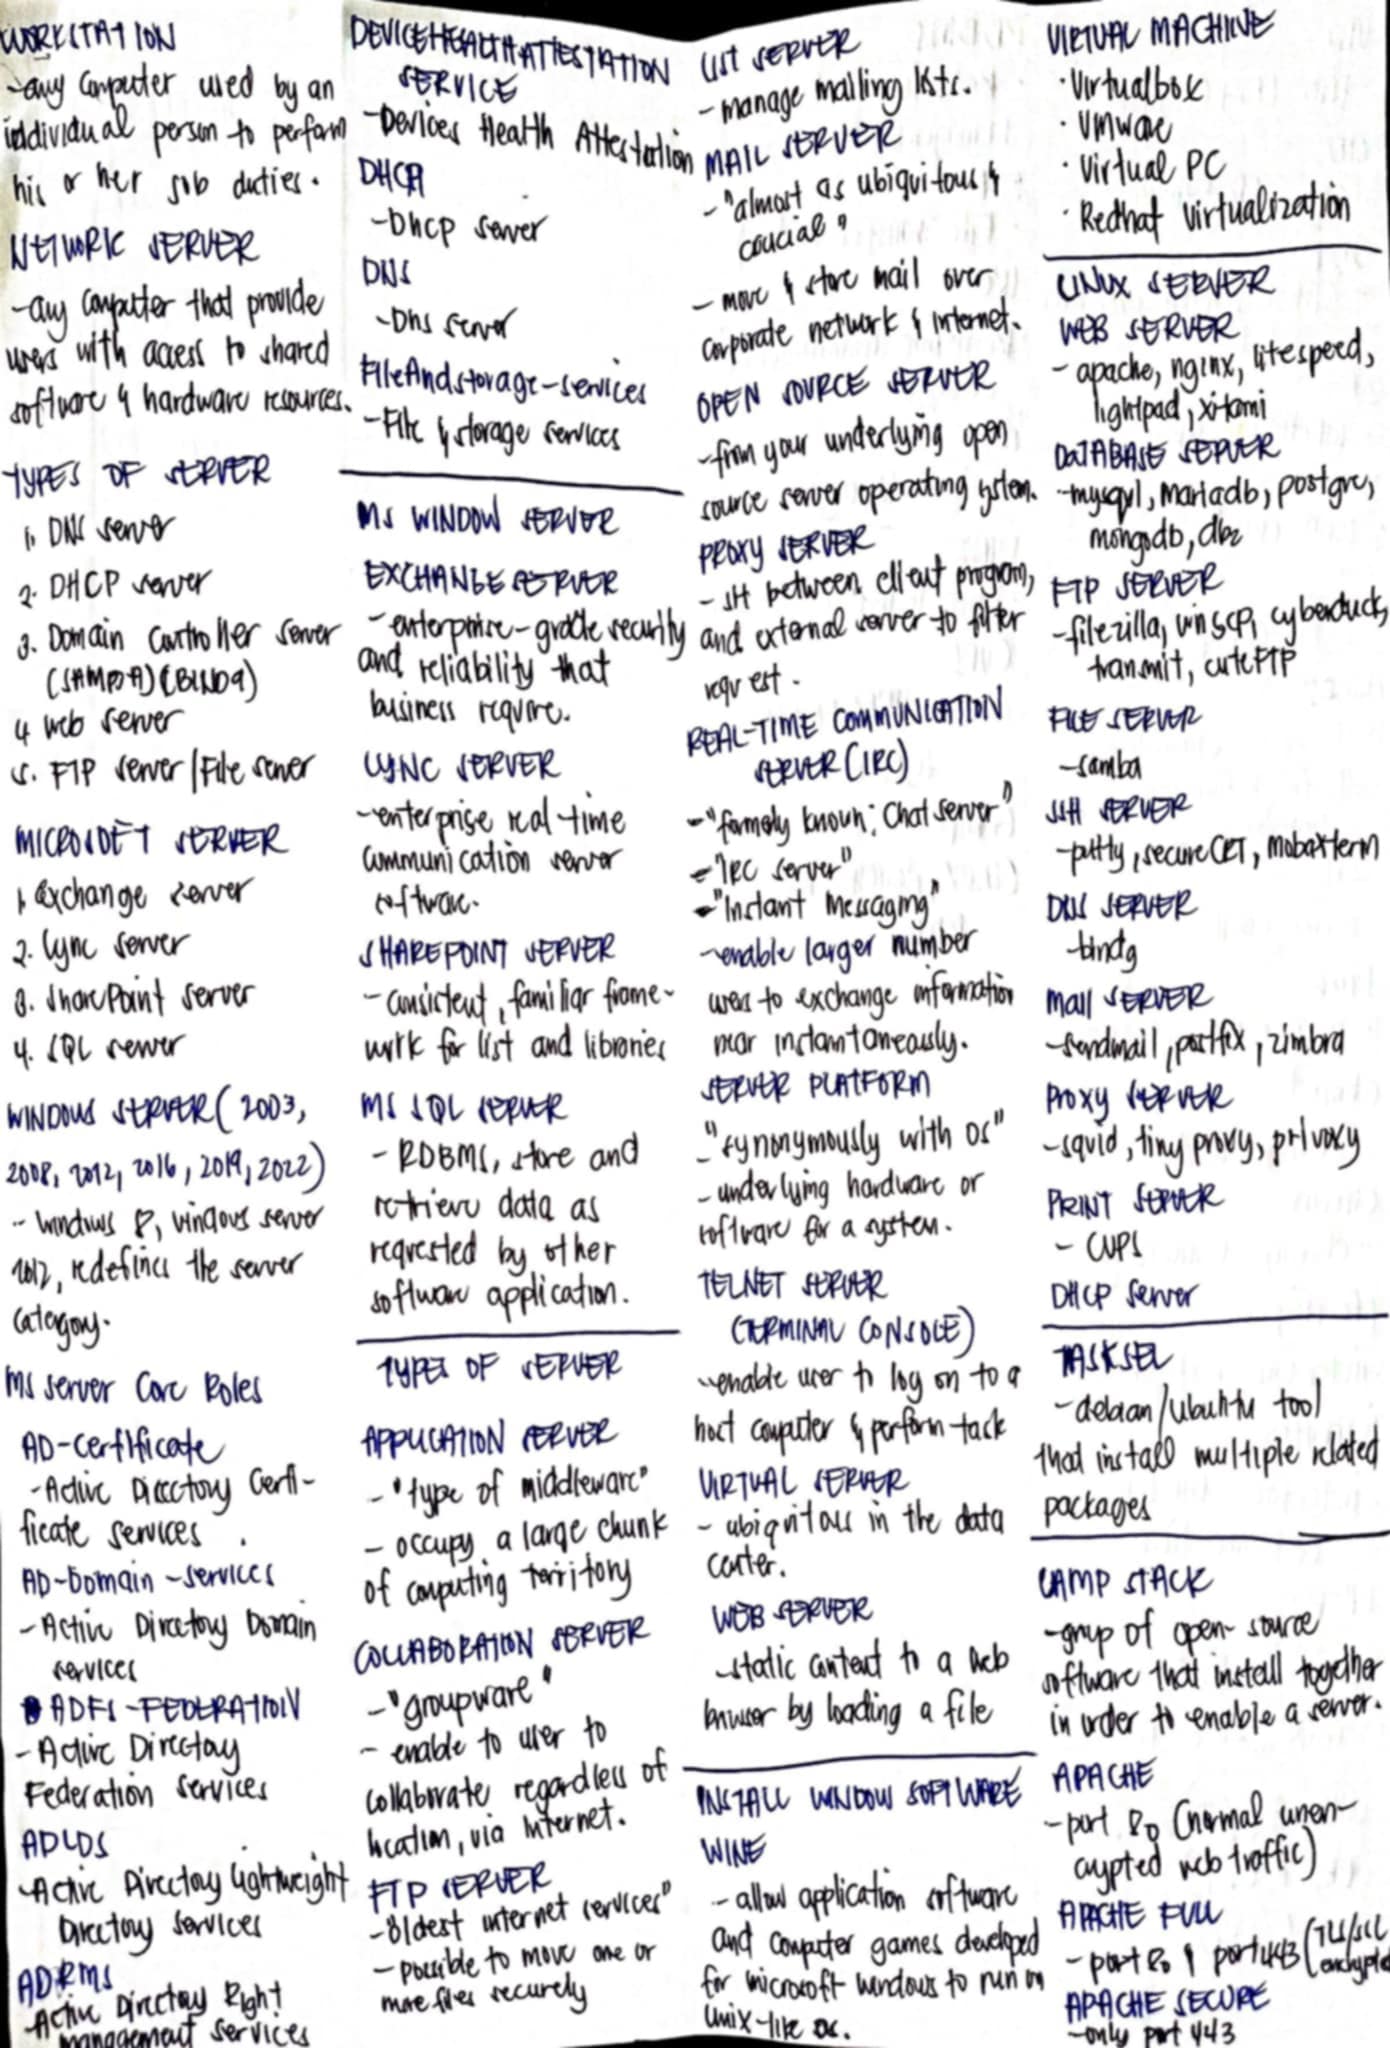 WORKSTATION
- any computer used by an
individual person to perform
his or her job duties.
NETWORK SERVER
- any computer that provide
users with access to shared
software & hardware resources.
TYPES OF SERVER
1. DNS server
2. DHCP server
3. Domain Controller server
(SAMBA)(BIND9)
4 web server
5. FTP server/File server
MICROSOFT SERVER
1. Exchange server
2. Lync server
3. SharePoint server
4. SQL server
WINDOWS SERVER (2003,
2008, 2012, 2016, 2019, 2022)
- windows 8, windows server
2012, redefines the server
category.
MS server Core Roles
AD-Certificate
- Active Directory Certi-
ficate services
AD-Domain-services
- Active Directory Domain
services
ADFS-FEDERATION
- Active Directory
Federation services
ADLDS
- Active Directory lightweight
Directory services
ADRMS
- Active Directory Right
management services
DEVICEHEALTHATTESTATION
SERVICE
- Devices Health Attestation
DHCP
- Dhcp server
DNS
- Dns server
FileAndstorage-services
- File & storage services
MS WINDOW SERVER
EXCHANGE SERVER
- enterprise-grade security
and reliability that
business require.
LYNC SERVER
- enterprise real-time
communication server
software.
SHAREPOINT SERVER
- consistent, familiar frame-
work for list and libraries
MS SQL SERVER
- RDBMS, store and
retrieve data as
requested by other
software application.
TYPES OF SERVER
APPLICATION SERVER
- "type of middleware"
- occupy a large chunk
of computing territory
COLLABORATION SERVER
- "groupware"
- enable to user to
collaborate regardless of
location, via Internet.
FTP SERVER
- "Oldest internet services"
- possible to move one or
more files securely
LIST SERVER
- manage mailing lists.
MAIL SERVER
- "almost as ubiquitous &
crucial"
- move & store mail over
corporate network & Internet.
OPEN SOURCE SERVER
- from your underlying open
source server operating system.
PROXY SERVER
- sit between client program,
and external server to filter
request.
REAL-TIME COMMUNICATION
SERVER (IRC)
- "formely known: Chat server"
- "IRC server"
- "Instant Messaging"
- enable larger number
users to exchange information
near instantaneously.
SERVER PLATFORM
- "synonymously with OS"
- underlying hardware or
software for a system.
TELNET SERVER
(TERMINAL CONSOLE)
- enable user to log on to a
host computer & perform task
VIRTUAL SERVER
- ubiquitous in the data
center.
WEB SERVER
- static content to a web
browser by loading a file
INSTALL WINDOW SOFTWARE
WINE
- allow application software
and computer games developed
for microsoft windows to run on
Unix-like os.
VIRTUAL MACHINE
· Virtualbox
· VMware
· Virtual PC
· Redhat Virtualization
LINUX SERVER
WEB SERVER
- apache, nginx, litespeed,
lightpad, xitami
DATABASE SERVER
- mysql, Mariadb, postgre,
mongodb, db2
FTP SERVER
- filezilla, winscp, cyberduck,
transmit, cuteFTP
FILE SERVER
- samba
SSH SERVER
- putty, secureCRT, mobaxterm
DNS SERVER
- bind9
Mail SERVER
- sendmail, postfix, zimbra
Proxy SERVER
- squid, tiny proxy, privoxy
PRINT SERVER
- CUPS
DHCP Server
TASKSEL
- debian/ubuntu tool
that install multiple related
packages
LAMP STACK
- group of open-source
software that install together
in order to enable a server.
APACHE
- port 80 (normal unen-
crypted web traffic)
APACHE FULL
- port 80 & port 443 (TLS/SSL
encrypted
APACHE SECURE
- only port 443